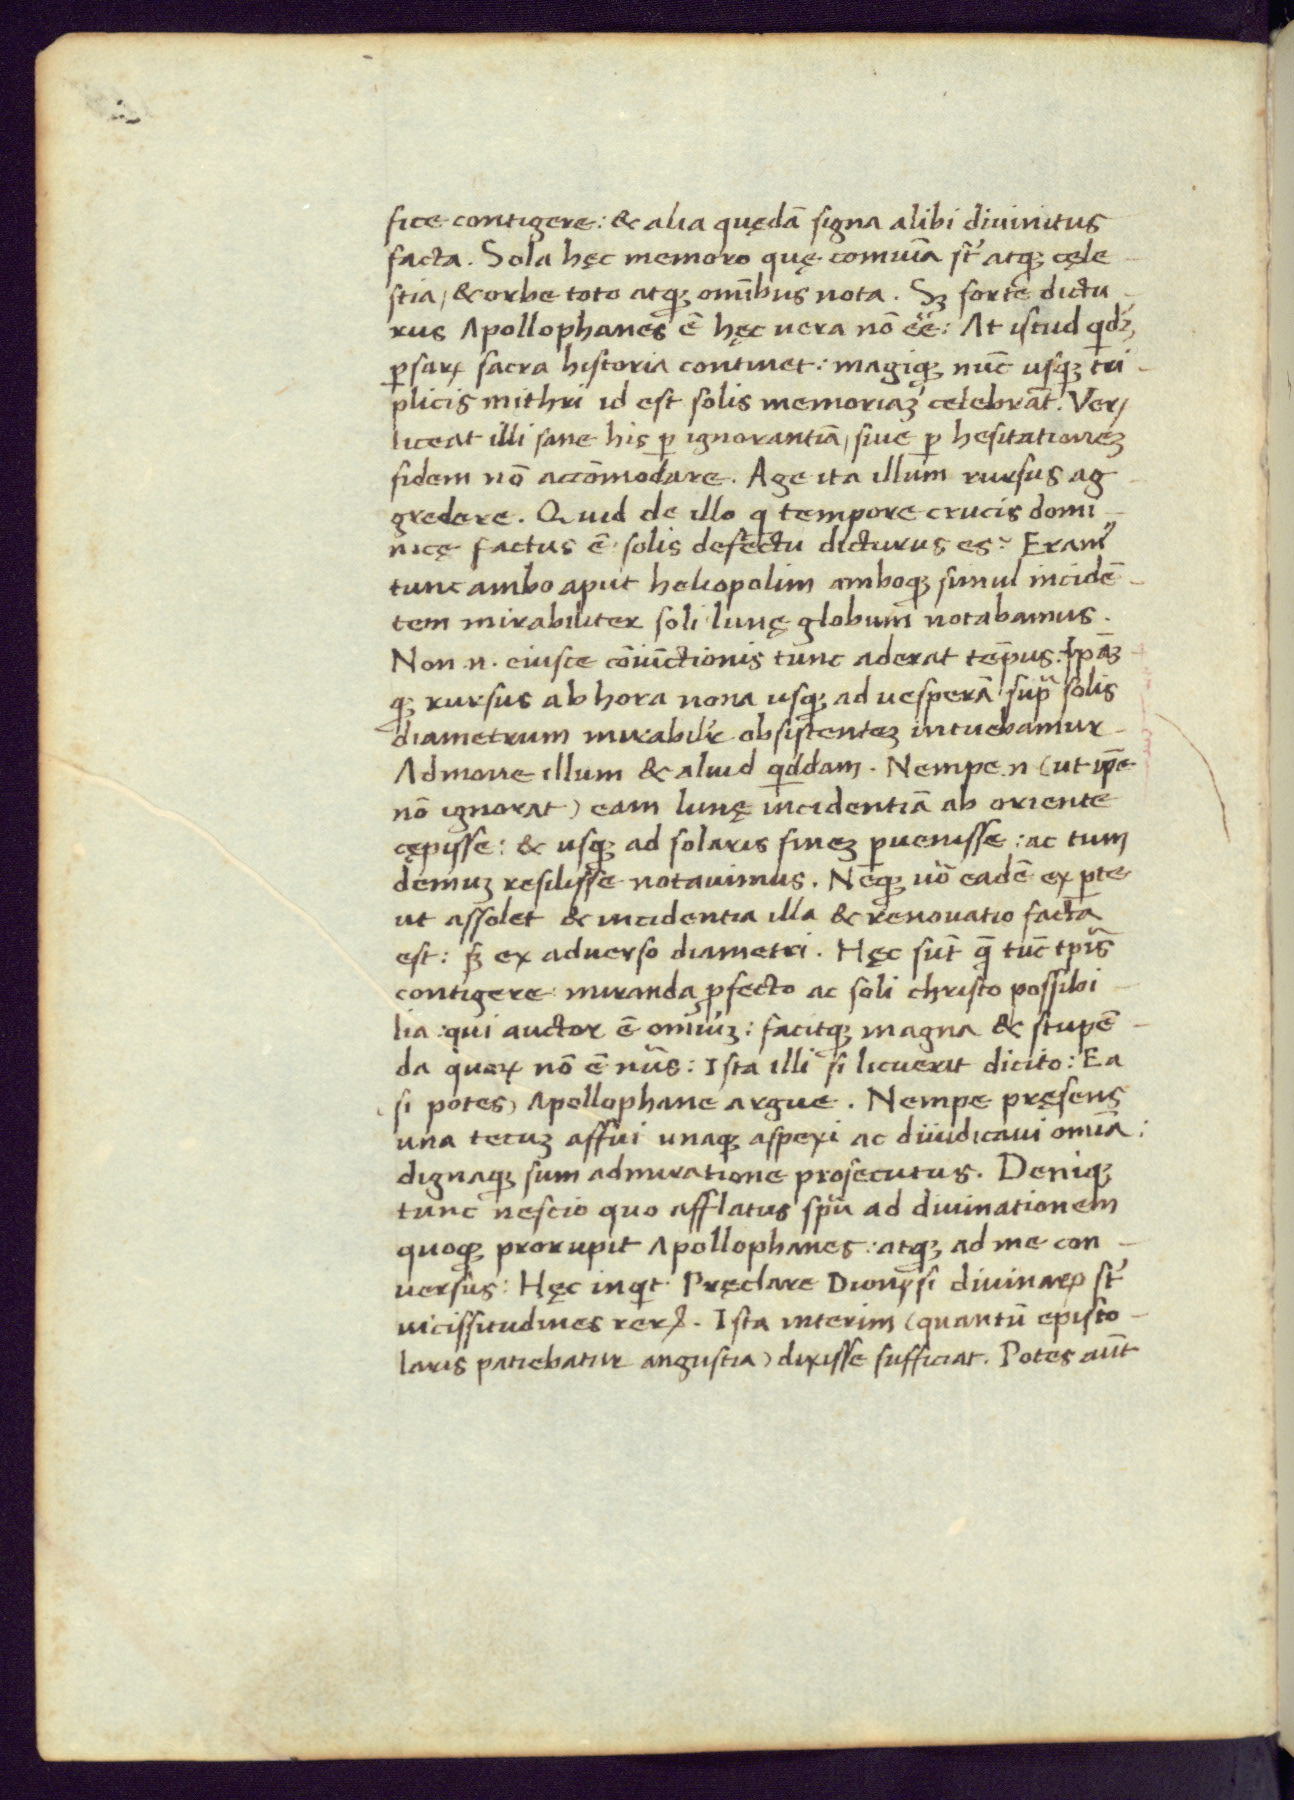 fice contigere: & alia quędā signa alibi diuinitus
facta. Sola hęc memoro quę comūia st̄ atqꝫ cęle-
stia, & orbe toto atqꝫ omībus nota. Sꝫ forte dictu-
rus Apollophanes ē hęc uera nō eē: At istud qdꝫ
psaꝝ sacra historia continet: magiqꝫ nūc usqꝫ tri-
plicis mithri id est solis memoriaꝫ celebrāt. Veꝝ
liceat illi sane his ꝑ ignorantiā, siue ꝑ hesitationeꝫ
fidem nō accōmodare. Age ita illum rursus ag-
gredere. Quid de illo q tempore crucis domi-
nicę factus ē solis defectu dicturus es? Eramꝰ
tunc ambo aput heliopolim amboqꝫ simul incidē-
tem mirabiliter soli lunę globum notabamus.
Non .n. eiusce cōiūctionis tunc aderat tēpus. Ipāꝫ-
qꝫ rursus ab hora nona usqꝫ ad uesperā supͣ solis
diametrum mirabilr̄ obsistenteꝫ intuebamur
Admone illum & aliud qddam. Nempe .n. (ut ip̄e
nō ignorat) eam lunę incidentiā ab oriente
cępisse: & usqꝫ ad solaris fineꝫ ꝑuenisse: ac tum
demuꝫ resilisse notauimus. Neqꝫ uō eadē ex ꝑte
ut assolet & incidentia illa & renouatio facta
est: sꝫ ex aduerso diametri. Hęc sūt q̄ tūc tp̄is
contigere miranda ꝓfecto ac soli christo possibi-
lia: qui auctor ē omīuꝫ: facitqꝫ magna & stupē-
da quoꝝ nō ē nūs: Ista illi si licuerit dicito: Ea
si potes) Apollophane argue. Nempe pręsens
una tecuꝫ affui unaqꝫ aspexi ac diiudicaui omīa:
dignaqꝫ sum admiratione prosecutus. Deniqꝫ
tunc nescio quo afflatus sp̄u ad diuinationem
quoqꝫ prorupit Apollophanes: atqꝫ ad me con-
uersus: Hęc inqt Pręclare Dionysi diuinaꝝ st̄
uicissitudines reꝝ. Ista interim (quantū episto-
laris patiebatur angustia) dixisse sufficiat. Potes aūt